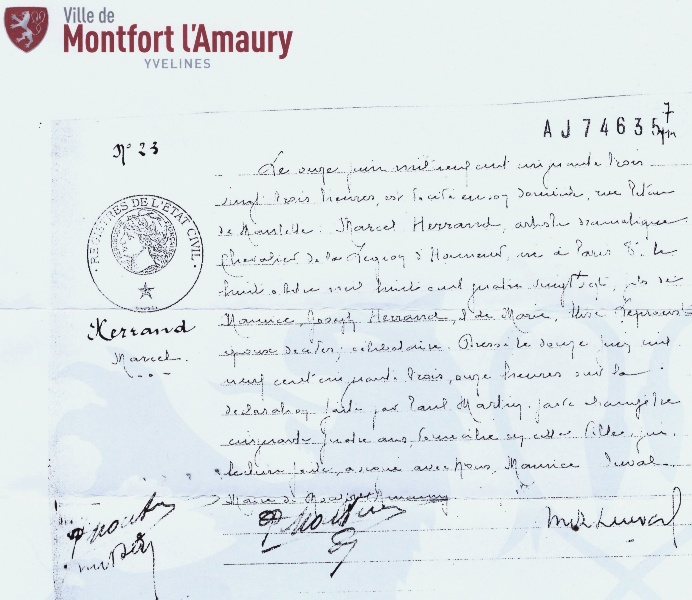 Ville de
Montfort l'Amaury
YVELINES
AJ 74635
7
N° 23
REGISTRES DE L'ÉTAT CIVIL
Herrand
Marcel
Le onze juin mil neuf cent cinquante trois
vingt trois heures, est décédé en son domicile, rue
de Mantelle. Marcel Herrand, artiste dramatique
Chevalier de la Légion d'Honneur, né à Paris 8e le
huit octobre mil huit cent quatre vingt sept, fils de
Maurice, Joseph Herrand, & de Marie,
époux décédés, célibataire. Dressé le douze juin mil
neuf cent cinquante trois, onze heures sur la
déclaration faite par Paul Martin,
cinquante quatre ans, domicilié en cette Ville, qui
lecture faite, a signé avec Nous, Maurice Duval
Maire de Montfort l'Amaury